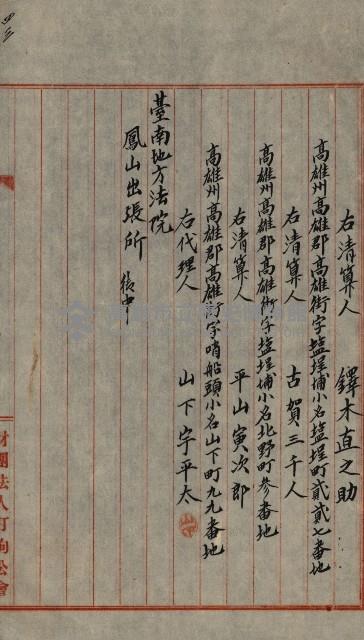 右清算人　鐸木直之助
高雄州高雄郡高雄街字塩埕埔小名塩埕町貳貳七番地
右清算人　古賀三千人
高雄州高雄郡高雄街字塩埕埔小名北野町參番地
右清算人　平山寅次郎
高雄州高雄郡高雄街字哨船頭小名山下町九九番地
右代理人　山下宇平太
臺南地方法院
鳳山出張所　後中
四三